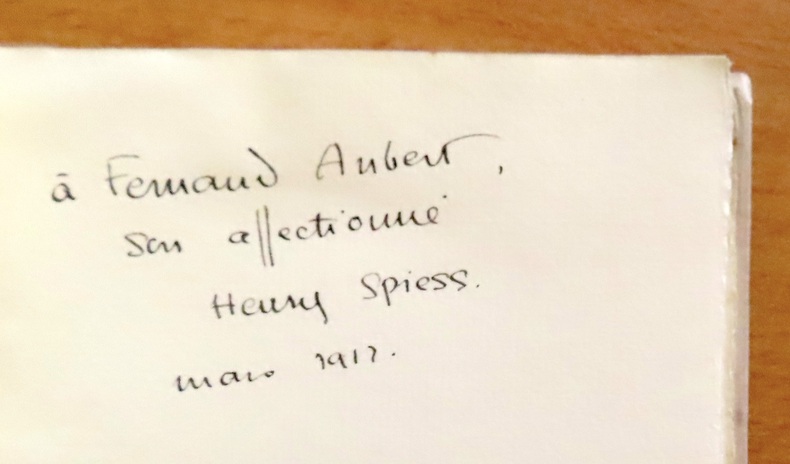 à Fernand Aubert,
son affectionné
Henry Spiess.
mars 1917.